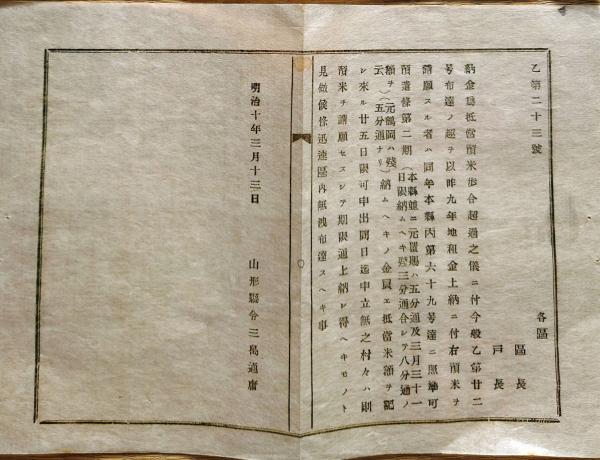 乙第二十三號
各區
區長
戸長
納金爲抵當預米歩合超過之儀ニ付今般乙第廿二
号布達ノ趣ヲ以昨九年地租金上納ニ付右預米ヲ
請願スル者ハ同年本縣丙第六十九号達ニ照準可
預置條第二期（本縣並ニ元置賜ハ五分通及三月三十一
日限納ムヘキ殘三分通合シテ八分通ノ
額ヲ）（元鶴岡ハ殘
云）（五分通ナリ）納ムヘキノ金員エ抵當米額ヲ記
シ來ル廿五日限可申出同日迄申立無之村々ハ則
預米ヲ請願セスシテ期限通上納シ得ヘキモノト
見做候條迅速區内無洩布達スヘキ事
明治十年三月十三日
山形縣令三島通庸